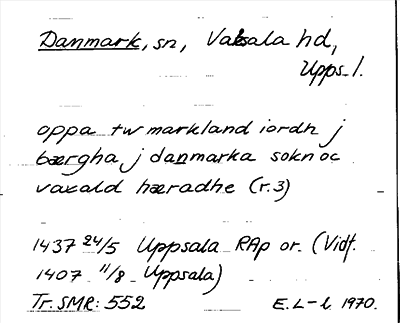 Danmark, sn, Vaksala hd,
Upps. l.
oppa tw markland iordh j
bærgha j danmarka sokn oc
vaxald hæradhe (r.3)
1437 24/5 Uppsala RAp or. (Vidf.
1407 11/8 Uppsala)
Tr. SMR: 552 E. L-l 1970.